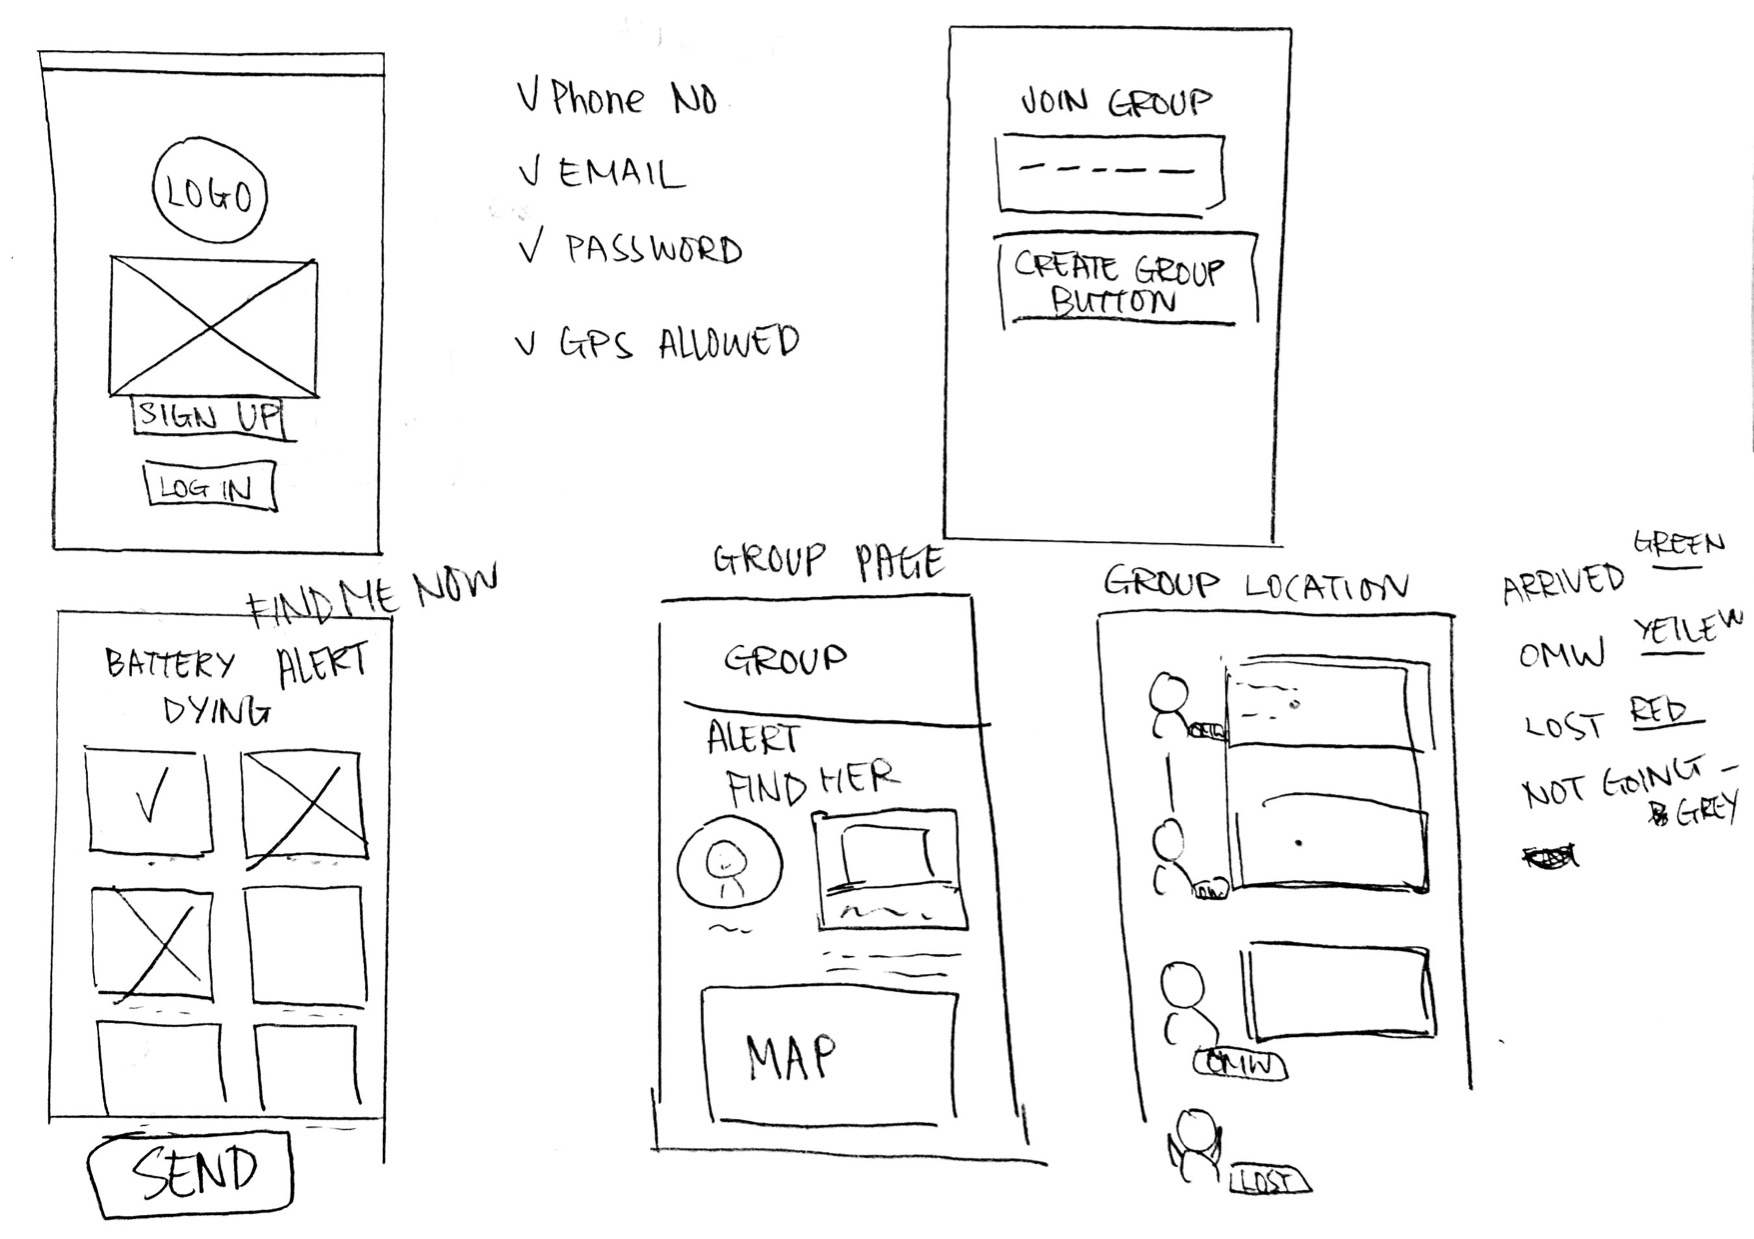 LOGO
SIGN UP
LOG IN
√ Phone NO
√ EMAIL
√ PASSWORD
√ GPS ALLOWED
JOIN GROUP
CREATE GROUP
BUTTON
FIND ME NOW
BATTERY ALERT
DYING
SEND
GROUP PAGE
GROUP
ALERT
FIND HER
MAP
GROUP LOCATION
OMW
OMW
OMW
LOST
ARRIVED GREEN
OMW YELLEW
LOST RED
NOT GOING -
GREY